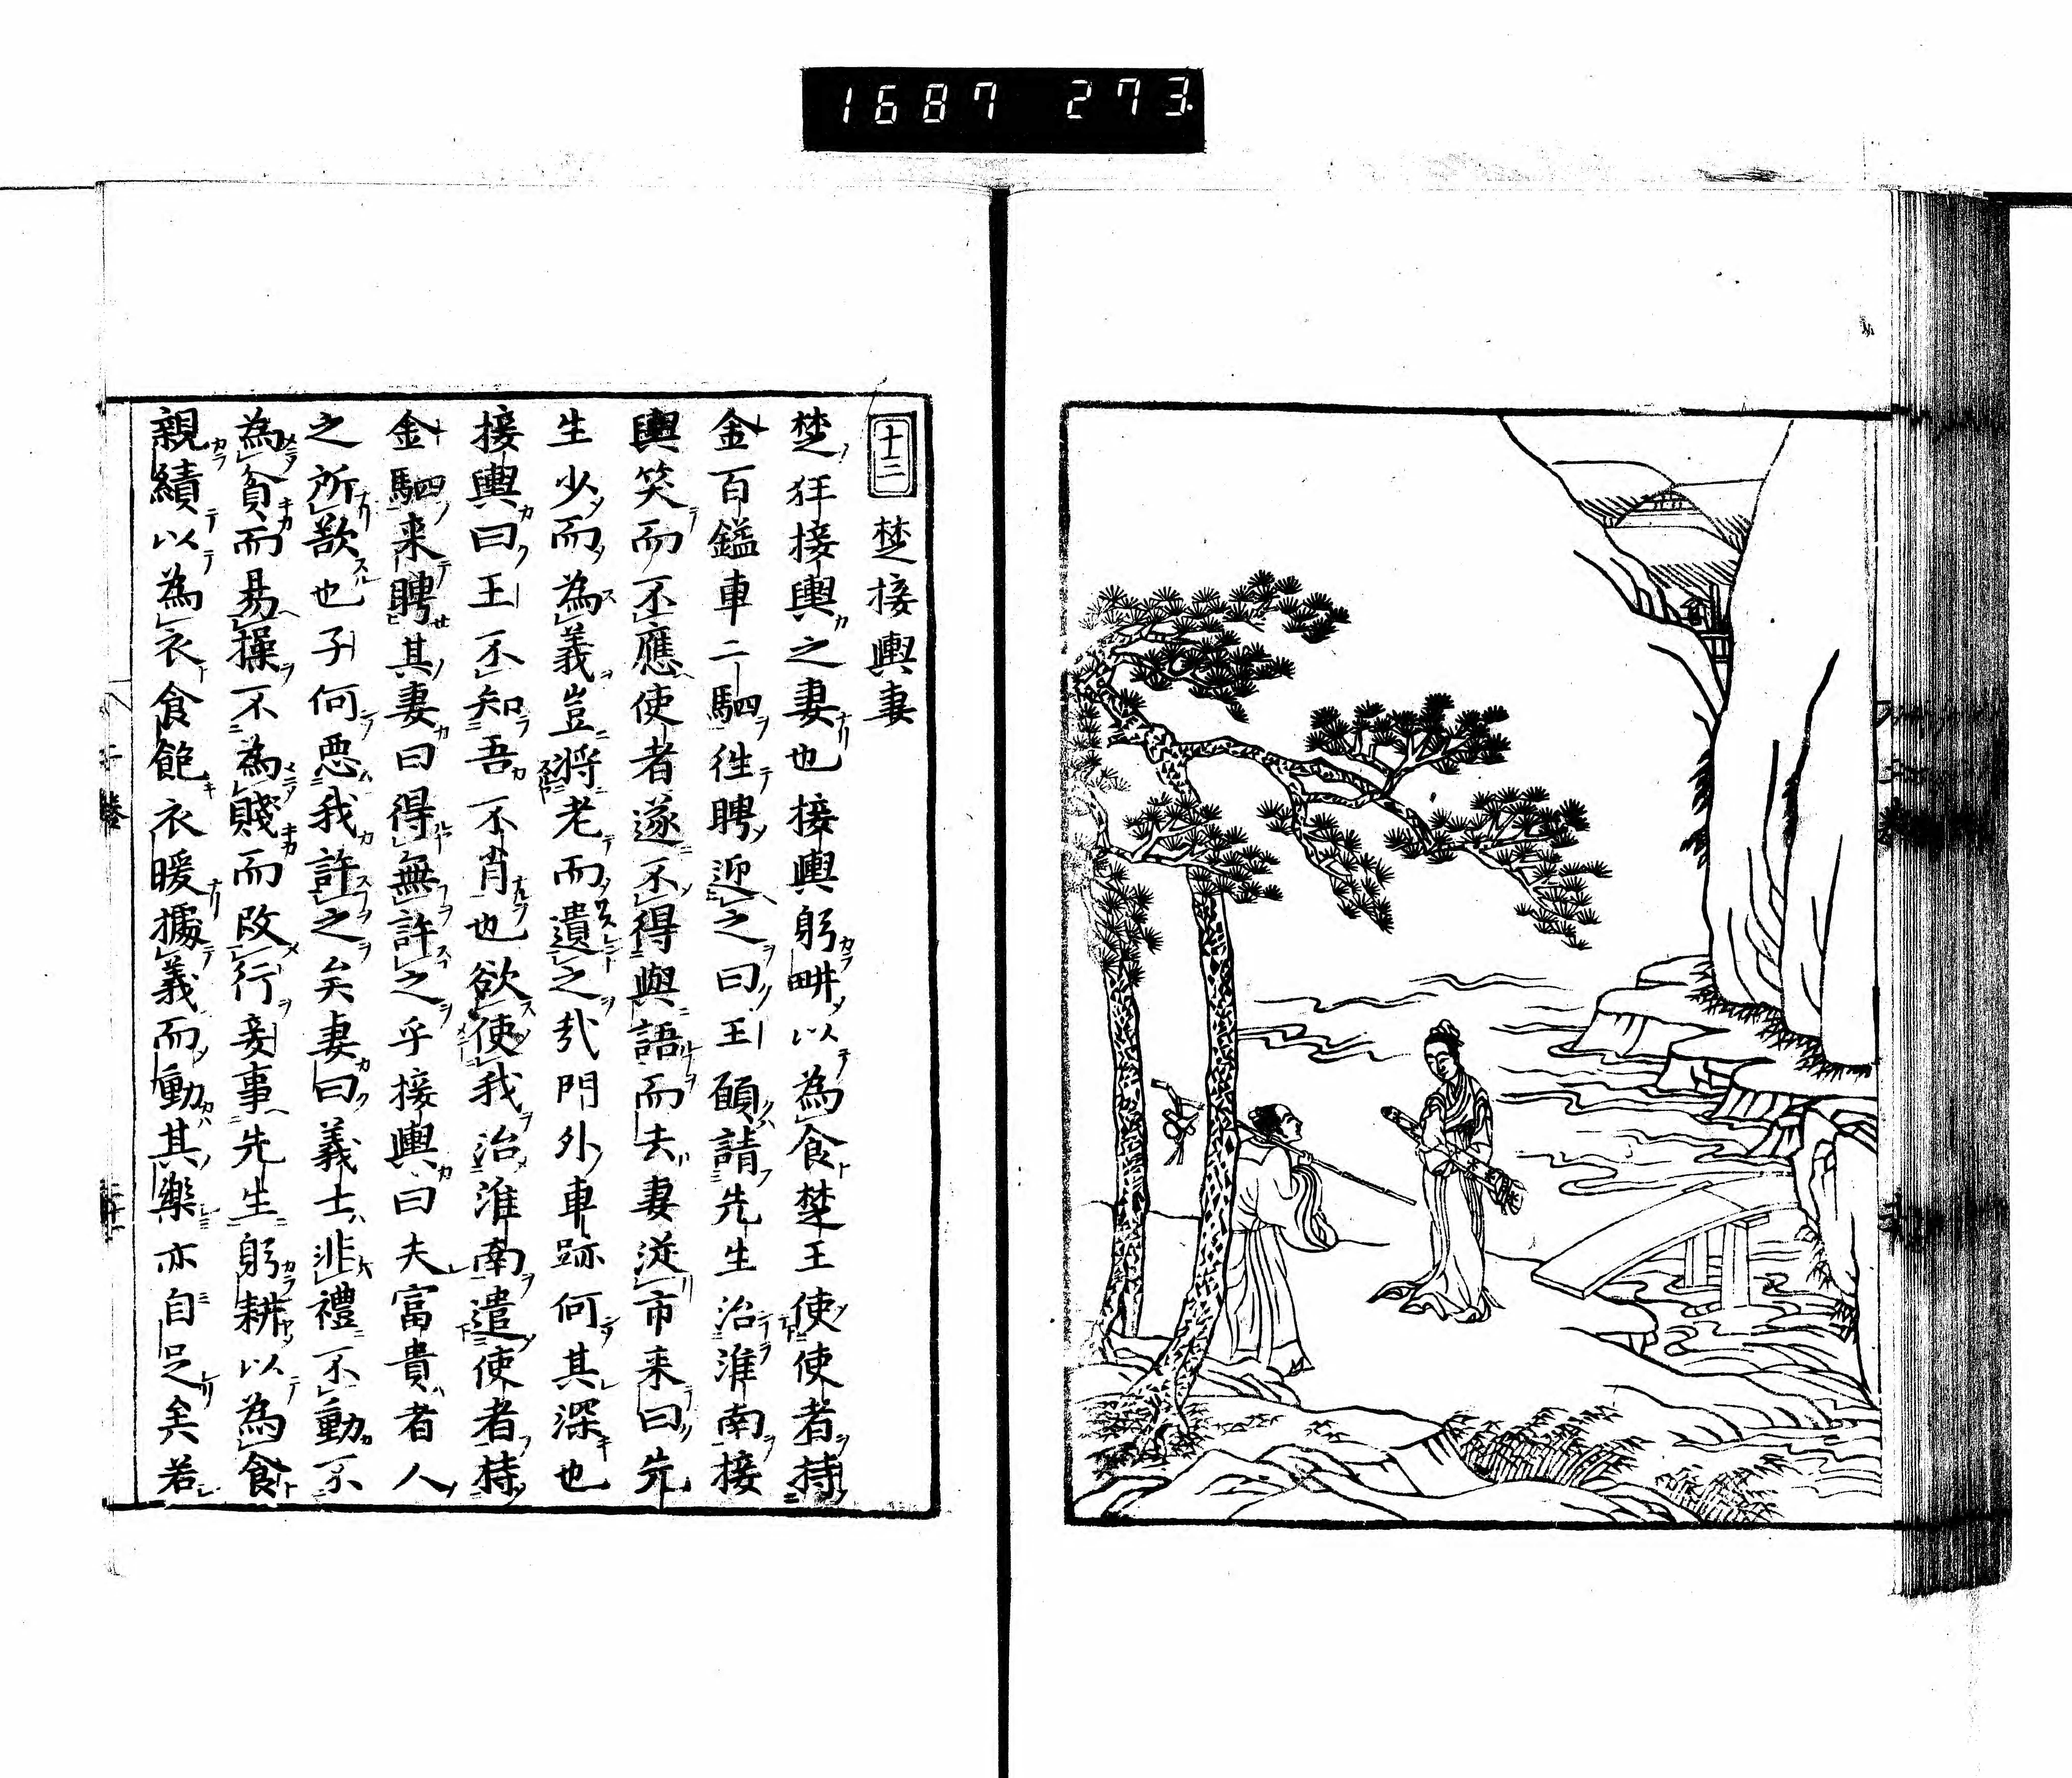 1687 273.
十三 楚接輿妻
楚狂接輿之妻也接輿躬畊以為食楚王使使者持
金百鎰車二駟徃聘迎之曰王願請先生治淮南接
輿笑而不應使者遂不得與語而去妻従市来曰先
生少而為義豈将老而遺之㢤門外車跡何其深也
接輿曰王不知吾不肖也欲使我治淮南遣使者持
金駟来聘其妻曰得無許之乎接輿曰夫富貴者人
之所欲也子何惡我許之矣妻曰義士非禮不動不
為貧而易操不為賤而改行妾事先生躬耕以為食
親績以為衣食飽衣暖據義而動其樂亦自足矣若